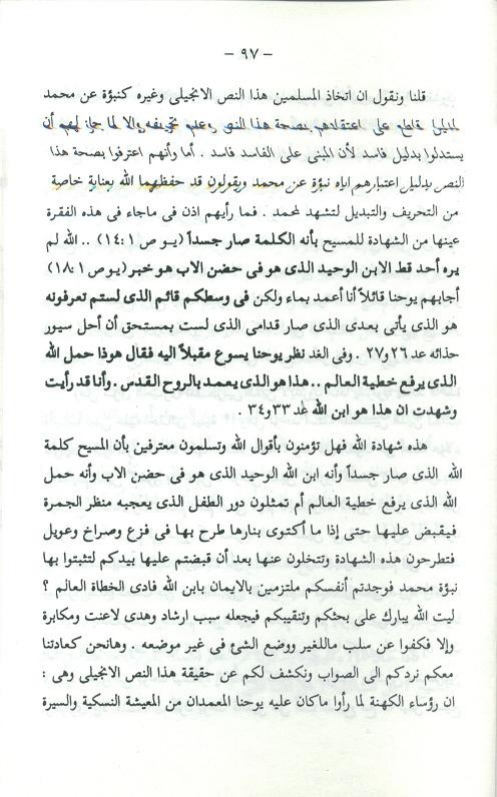 – ٩٧ –
قلنا ونقول ان اتخاذ المسلمين هذا النص الانجيلى وغيره كنبؤة عن محمد
لدليل قاطع على اعتقادهم بصحة هذا النص وعدم تحريفه والا لما جاز لهم أن
يستدلوا بدليل فاسد لأن المبنى على الفاسد فاسد . أما وأنهم اعترفوا بصحة هذا
النص بدليل اعتبارهم اياه نبؤة عن محمد ويقولون قد حفظهما الله بعناية خاصة
من التحريف والتبديل لتشهد لمحمد . فما رأيهم اذن فى ماجاء فى هذه الفقرة
عينها من الشهادة للمسيح بأنه الكلمة صار جسداً (يـو ص ١٤:١) .. الله لم
يره أحد قط الابن الوحيد الذى هو فى حضن الاب هو خبر (يو ص ١٨:١)
أجابهم يوحنا قائلاً أنا أعمد بماء ولكن فى وسطكم قائم الذى لستم تعرفونه
هو الذى يأتى بعدى الذى صار قدامى الذى لست بمستحق أن أحل سيور
حذائه عد ٢٦ و٢٧ . وفى الغد نظر يوحنا يسوع مقبلاً اليه فقال هوذا حمل الله
الذى يرفع خطية العالم .. هذا هو الذى يعمد بالروح القدس . وأنا قد رأيت
وشهدت ان هذا هو ابن الله عد ٣٣ و٣٤ .
هذه شهادة الله فهل تؤمنون بأقوال الله وتسلمون معترفين بأن المسيح كلمة
الله الذى صار جسداً وأنه ابن الله الوحيد الذى هو فى حضن الاب وأنه حمل
الله الذى يرفع خطية العالم أم تمثلون دور الطفل الذى يعجبه منظر الجمرة
فيقبض عليها حتى إذا ما أكتوى بنارها طرح بها فى فزع وصراخ وعويل
فتطرحون هذه الشهادة وتتخلون عنها بعد أن قبضتم عليها بيدكم لتثبتوا بها
نبؤة محمد فوجدتم أنفسكم ملتزمين بالايمان بابن الله فادى الخطاة العالم ؟
ليت الله يبارك على بحثكم وتنقيبكم فيجعله سبب ارشاد وهدى لاعنت ومكابرة
وإلا فكفوا عن سلب ماللغير ووضع الشئ فى غير موضعه . وهانحن كعادتنا
معكم نردكم الى الصواب ونكشف لكم عن حقيقة هذا النص الانجيلى وهى :
ان رؤساء الكهنة لما رأوا ماكان عليه يوحنا المعمدان من المعيشة النسكية والسيرة